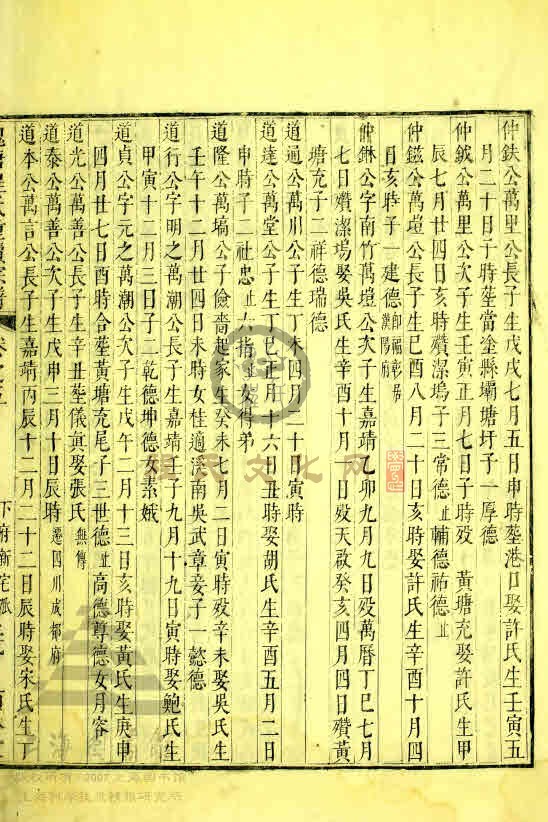 仲鈇公萬里公長子生戊戌七月五日申時塟港口娶許氏生壬寅五
月二十日子時塟當塗縣壩塘圩子一厚德
仲鉞公萬里公次子生壬寅正月七日子時歿 黃塘充娶許氏生甲
辰七月四日亥時殯潔塢子三常德止輔德祐德止
仲鎡公萬塏公長子生己酉八月二十日亥時娶許氏生辛酉十月四
日亥時子一建德即福彰居漢陽府
仲 公字南竹萬塏公次子生嘉靖乙卯九月九日歿萬曆丁巳七月
七日殯潔塢娶吳氏生辛酉十月一日歿天啟癸亥四月四日殯黃
塘充子二祥德瑞德
道通公萬川公子生丁未四月二十日寅時
道達公萬堂公子生丁巳正月十六日丑時娶胡氏生辛酉五月二日
申時子二社 忠止六指止女得弟
道隆公萬塙公子儉嗇起家生癸未七月二日寅時歿辛未娶吳氏生
壬午十二月廿四日未時女桂適溪南吳武章妾子一懿德
道行公字明之萬潮公長子生嘉靖壬子九月十九日寅時娶鮑氏生
甲寅十二月三日子二乾德坤德女素娥
道貞公字元之萬潮公次子生戊午二月十三日亥時娶黃氏生庚申
四月廿七日酉時合塟黃塘充尾子三世德止高德尊德女月容
道光公萬善公長子生辛丑塟儀真娶張氏無傳
道泰公萬善公次子生戊申三月十日辰時遷四川成都府
道本公萬言公長子生嘉靖丙辰十二月二十二日辰時娶宋氏生丁
下府新宅派
程氏文化网
2007上海图书馆